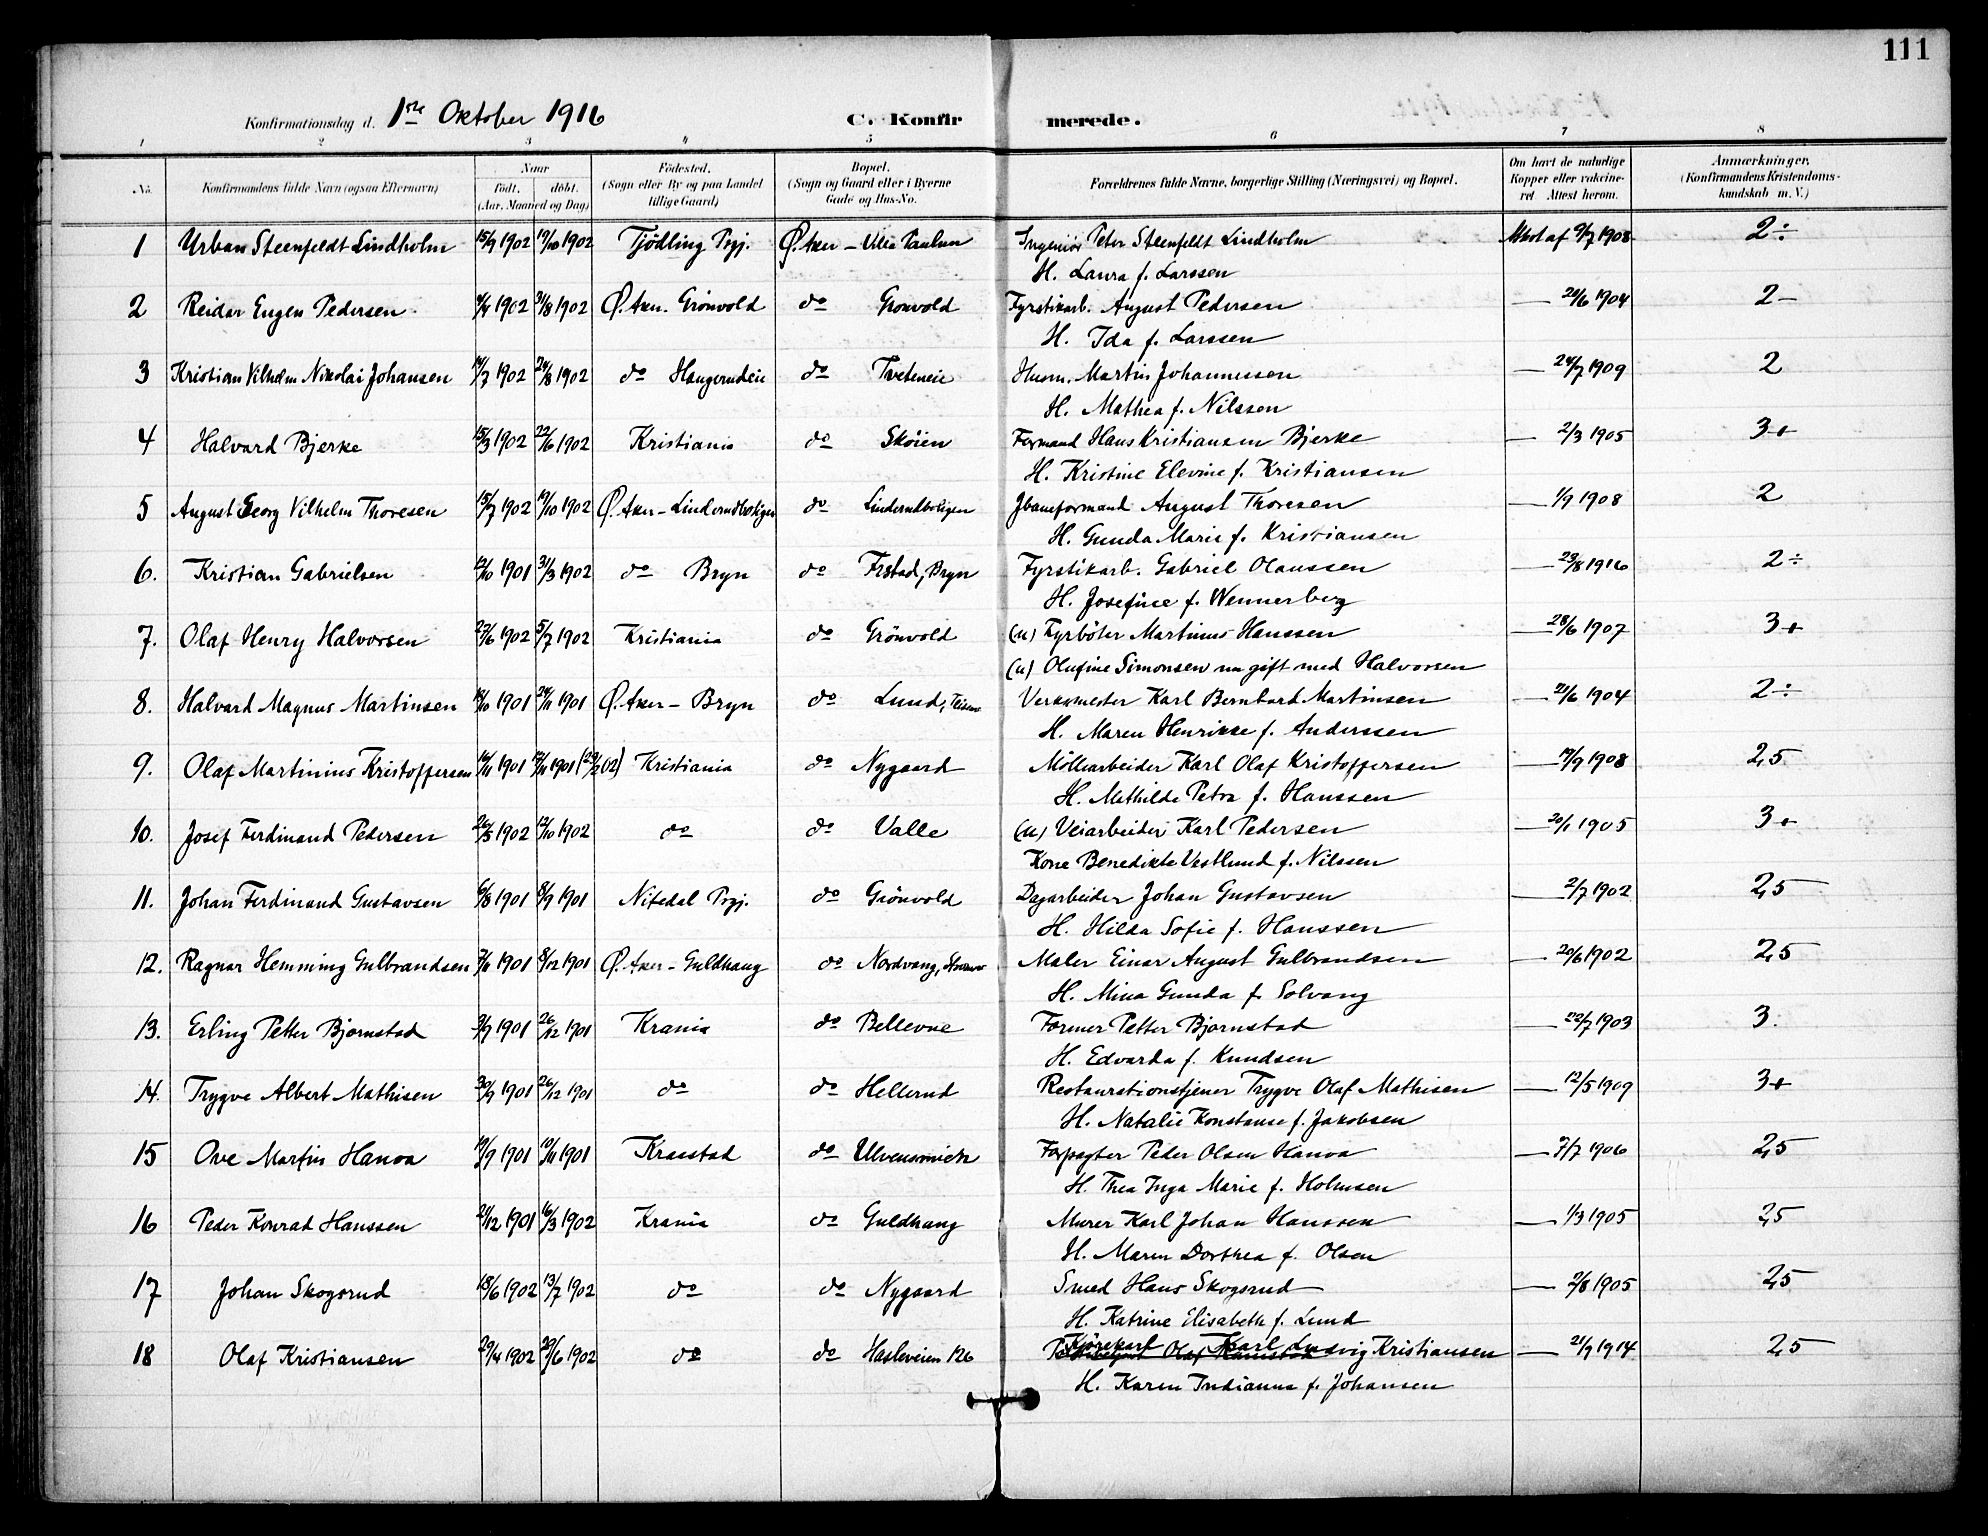 111
Konfirmationsdag d. 1ste Oktober 1916 C. Konfirmerede.
1 2 3 4 5 6 7 8
No. Konfirmandens fulde Navn (ogsaa Efternavn) Naar født. døbt. (Aar, Maaned og Dag) Fødested. (Sogn eller By og paa Landet tillige Gaard) Bopæl. (Sogn og Gaard eller i Byerne Gade og Hus-No. Forældrenes fulde Navne, borgerlige Stilling (Næringsvei) og Bopæl. Om havt de naturlige Kopper eller vakcineret. Attest herom. Anmærkninger. (Konfirmandens Kristendomskundskab m. V.)
1 Urban Steenfeldt Lindholm 15/9 1902 19/10 1902 Tjödling Prgj. Ø. Aker - Villa Paulun Ingeniör Peter Steenfeldt Lindholm Attest af 9/7 1908 2÷
H. Laura f. Larssen
2 Reidar Eugen Pedersen 4/4 1902 31/8 1902 Ø. Aker. Grönvold do Gronvold Fyrstikarb. August Pedersen — 20/6 1904 2-
H. Ida f. Larssen
3 Kristian Vilhelm Nikolai Johansen 14/7 1902 24/8 1902 do Haugerudeie do Tveteneie Husm. Martin Johannessen — 24/7 1909 2
H. Mathea f. Nilssen
4 Halvard Bjerke 15/3 1902 22/6 1902 Kristiania do Skøien Formand Hans Kristiansen Bjerke — 2/3 1905 3+
H. Kristine Elevine f. Kristiansen
5 August Georg Vilhelm Thoresen 15/7 1902 19/10 1902 Ø. Aker - Linderudboligen do Linderudboligen Jbaneformand August Thoresen — 1/9 1908 2
H. Gunda Marie f. Kristiansen
6. Kristian Gabrielsen 12/10 1901 31/3 1902 do Bryn do Frstad, Bryn Fyrstikarb. Gabriel Olaussen — 29/8 1916 2÷
H. Josefine f. Wennerberg
7. Olaf Henry Halvorsen 27/6 1902 5/7 1902 Kristiania do Grönvold (u) Fyrböter Martinus Hanssen — 28/6 1907 3+
(u) Olufine Simonsen nu gift med Halvorsen
8. Halvard Magnus Martinsen 14/10 1901 24/11 1901 Ø. Aker - Bryn do Lund, Teisen Verksmester Karl Bernhard Martinsen — 20/6 1904 2÷
H. Maren Henrikke f. Anderssen
9. Olaf Martinius Kristoffersen 16/11 1901 17/11 1901 (23/2 02) Kristiania do Nygaard Möllearbeider Karl Olaf Kristoffersen — 19/9 1908 2,5
H. Mathilde Petra f. Hanssen
10. Josef Ferdinand Pedersen 26/5 1902 12/10 1902 do do Valle (u) Veiarbeider Karl Pedersen — 20/1 1905 3+
Kone Benedikte Vestlund f. Nilssen
11. Johan Ferdinand Gustavsen 6/8 1901 8/9 1901 Nitedal Prgj. do Grönvold Dagarbeider Johan Gustavsen — 2/7 1902 2,5
H. Hilda Sofie f. Hanssen
12. Ragnar Hemming Gulbrandsen 7/11 1901 8/12 1901 Ø. Aker - Guldhaug do Nordvang, Maler Einar August Gulbrandsen — 20/6 1902 2,5
H. Mina Gunda f. Solvang
13. Erling Petter Bjørnstad 3/9 1901 26/12 1901 Krania do Bellevue Former Petter Bjørnstad — 22/7 1903 3.
H. Edvarda f. Knudsen
14. Trygve Albert Mathisen 30/9 1901 26/12 1901 do do Hellerud Restaurationstjener Trygve Olaf Mathisen — 12/5 1909 3+
H. Natalie Konstanse f. Jakobsen
15 Ove Martin Hanoa 19/9 1901 10/11 1901 Kraastad do Ulvensmieth Forpagter Peder Olsen Hanoa — 7/7 1906 2,5
H. Thea Inga Marie f. Holmsen
16 Peder Konrad Hanssen 21/12 1901 16/3 1902 Krania do Guldhaug Murer Karl Johan Hanssen — 1/3 1905 2,5
H. Maren Dorthea f. Olsen
17 Johan Skogsrud 18/6 1902 13/7 1902 do do Nygaard Smed Hans Skogsrud — 2/8 1905 2,5
H. Katrine Elisabeth f. Lund
18 Olaf Kristiansen 29/4 1902 29/6 1902 do do Hasleveien 126 Kjörekarl Karl Ludvig Kristiansen — 21/9 1914 2,5
H. Karen Indianna f. Johansen